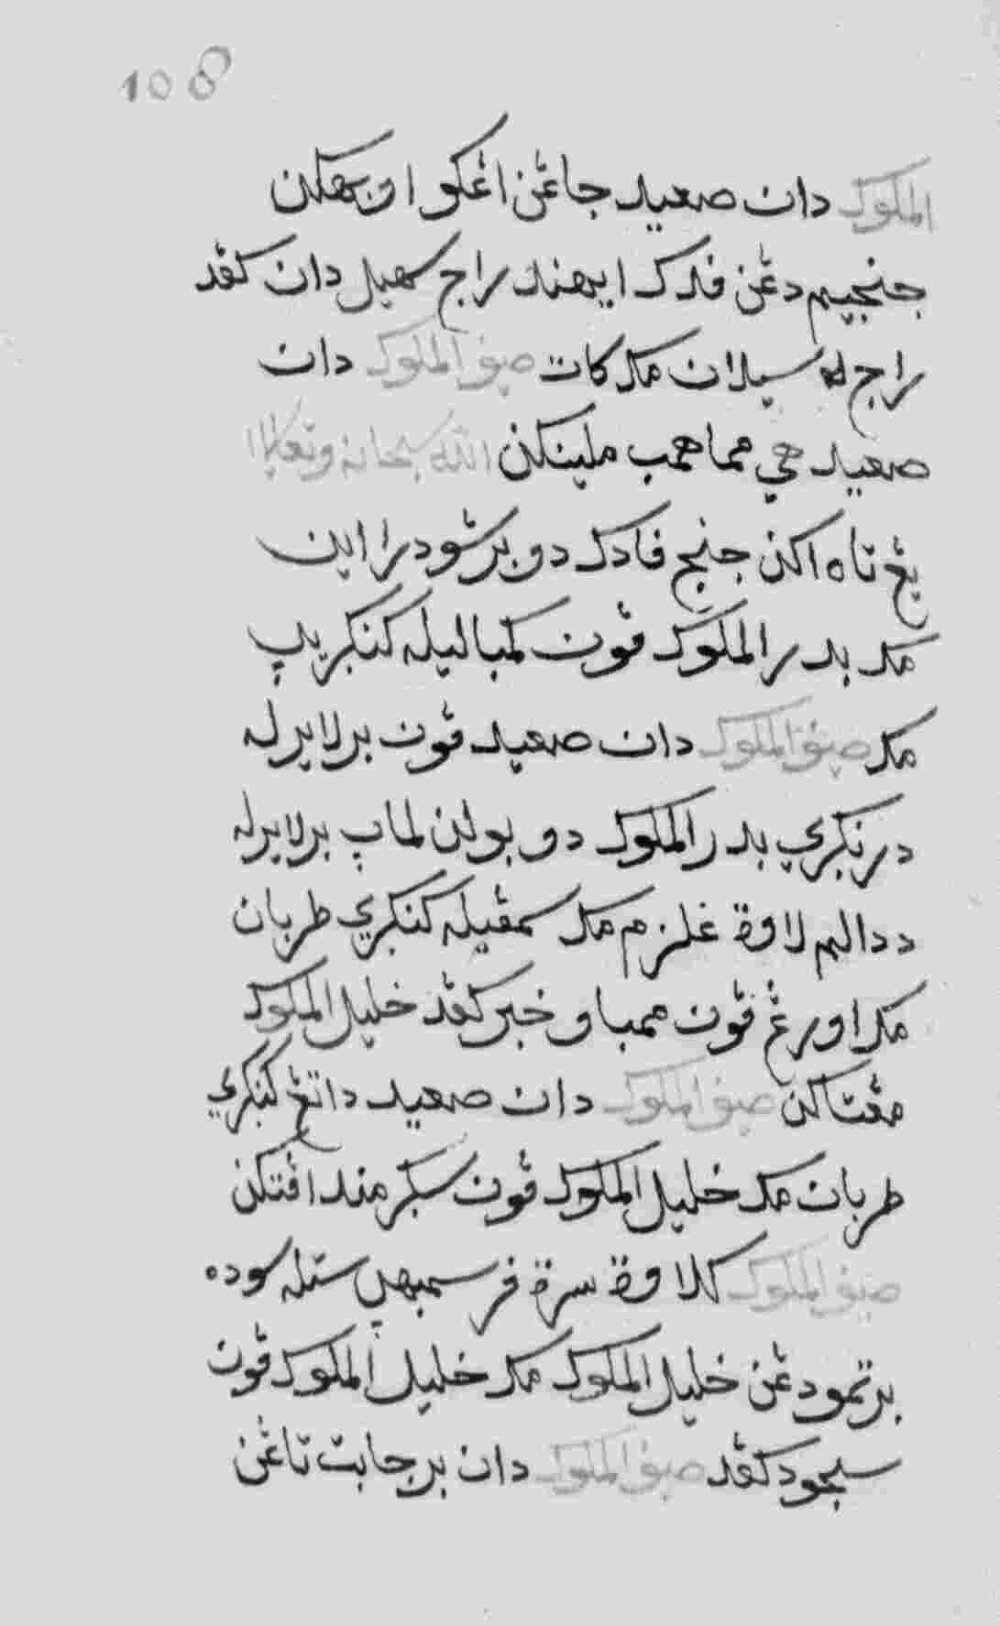 108
الملوك دان صعيد جاڠن اڠكو اوبهكن
جنجيم دڠن فدك ايهند راج سهيل دان كڤد
راج له سيلان مك كات صيف الملوك دان
صعيد هي مماهمب ملينكن الله سبحانه وتعالى
يڠ تاه اكن جنج فادك دو برسودرا اين
مك بدر الملوك ڤون كمباليله كنكريڽ
مك صيف الملوك دان صعيد ڤون برلايرله
در نكري بدر الملوك دو بولن لماڽ برلايرله
ددالم لاوة غلزم مك سمڤيله كنكري طربان
مك اورڠ ڤون ممباو خبر كڤد خليل الملوك
مڠتاكن صيف الملوك دان صعيد داتڠ كنكري
طربان مك خليل الملوك ڤون سكر منداڤتكن
صيف الملوك كلاوة سرة فرسمبهن ستله سوده
برتمو دڠن خليل الملوك مك خليل الملوك ڤون
سجود كڤد صيف الملوك دان برجابت تاڠن